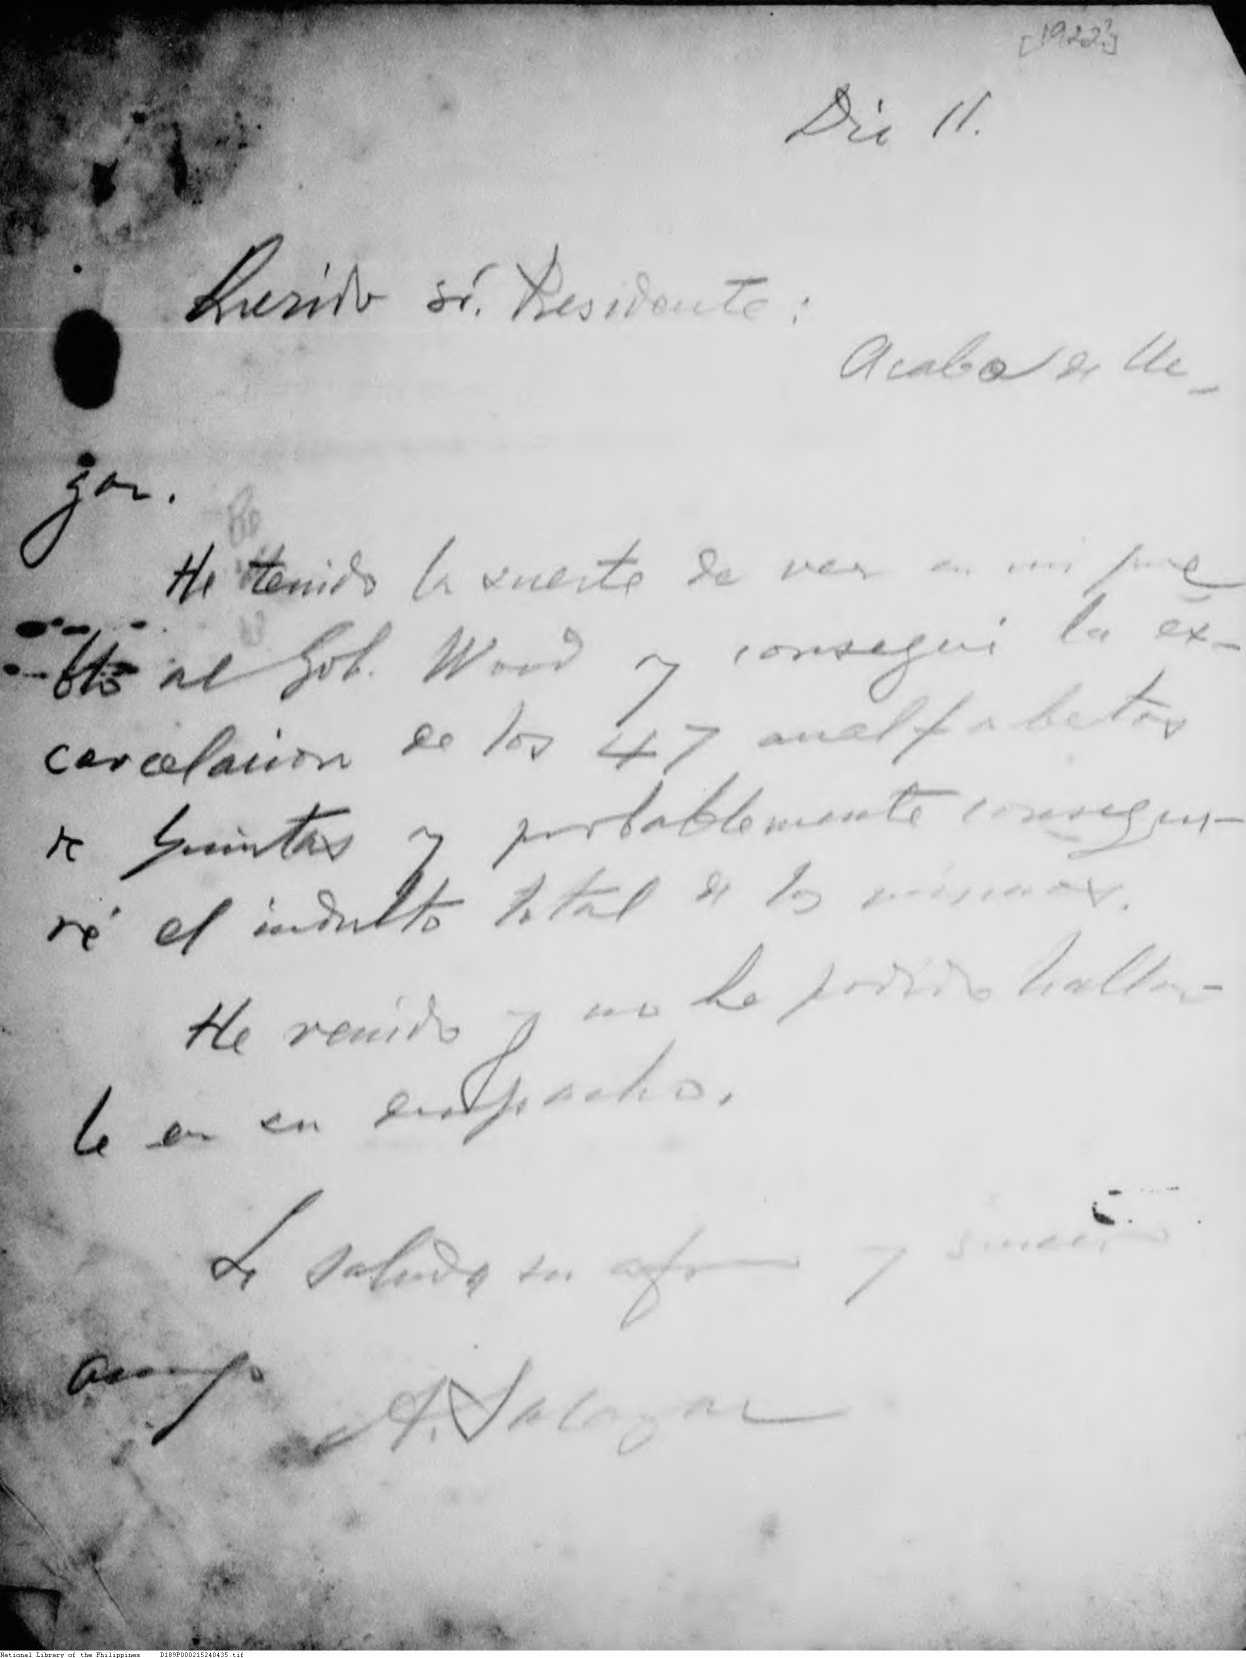 [1922?]
Dic 11.
Querido Sr. Presidente:
Acabo de lle-
gar.
He tenido la suerte de ver en mi pue
blo al Gob. Wood y conseguí la ex-
carcelacion de los 47 analfabetos
de Quintas y probablemente consegui-
ré el indulto total de los mismos.
He venido y no he podido hallar-
le en su despacho.
Le saluda su afmo y sincero
amigo
A. Salazar
National Library of the Philippines D189P000215240435.tif